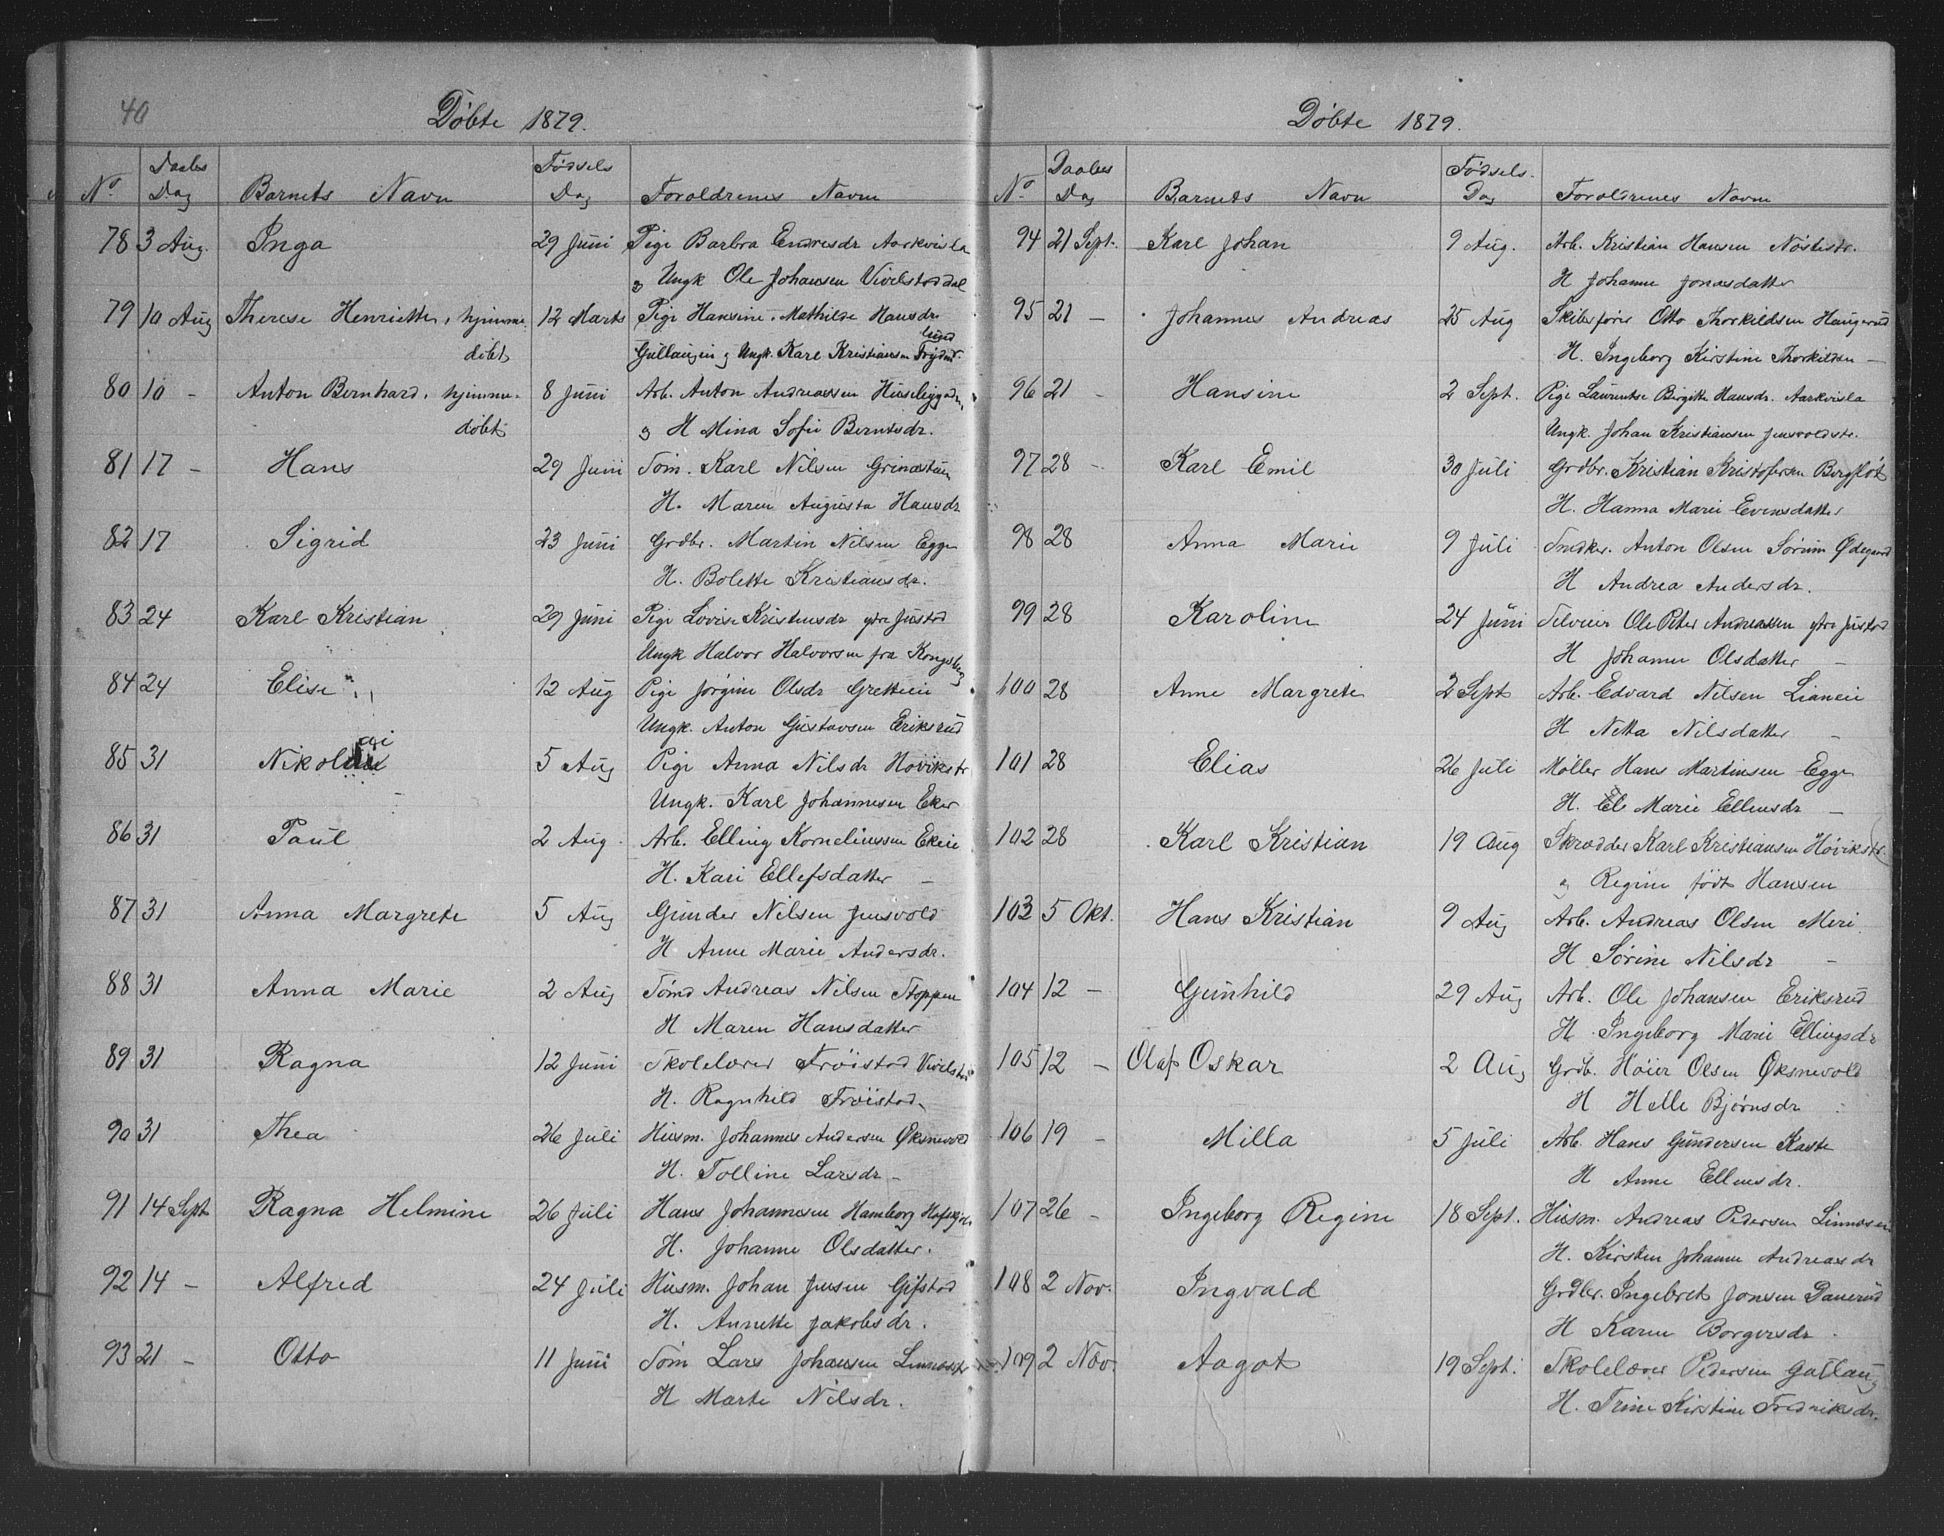 40
Döbte 1879.
No Daabs Dag Barnets Navn Fødsels Dag Forældrenes Navne
78 3 Aug. Inga 29 Juni Pige Barbra Endresdr Aarkvisla
og Ungk Ole Johansen Vivelstaddal
79 10 Aug Therese Henriette, hjemme 12 Marts Pige Hansine Mathilde Hansdr
døbt Gullaugen og Ungk. Karl Kristiansen
80 10 - Anton Bernhard, hjemme 8 Juni Arb. Anton Andreassen
døbt og H Mina Sofie Berntsdr.
81 17 - Hans 29 Juni Tøm. Karl Nilsen
H. Maren Augusta Hansdr
82 17 Sigrid 23 Juni Grdbr. Martin Nilsen Egge
H. Bolette Kristiansdr.
83 24 Karl Kristian 29 Juni Pige Lovise Kristensdr ytre Justad
Ungk Halvor Halvorsen fra Kongsberg
84 24 Elise 12 Aug Pige Jørgine Olsdr
Ungk. Anton Gustavsen Eriksrud
85 31 Nikolai 5 Aug Pige Anna Nilsdr Høvikstr
Ungk. Karl Johannesen Eker
86 31 Paul 2 Aug. Arb. Elling Korneliussen Ekeie
H. Kari Ellefsdatter -
87 31 Anna Margrete 5 Aug Gunder Nilsen Jensvold
H Anne Marie Andersdr.
88 31 Anna Marie 2 Aug Tømd Andreas Nilsen Stoppen
H Maren Hansdatter
89 31 Ragna 12 Juni Skolelærer Frøistad
H. Ragnhild Frøistad
90 31 Thea 26 Juli Husm. Johannes Andersen Øksnevold
H. Tolline Larsdr -
91 14 Sept Ragna Helmine 26 Juli Hans Johannesen Hamborg
H. Johanne Olsdatter.
92 14 - Alfred 24 Juli Husm. Johan Jensen Gifstad
H. Annette Jakobsdr.
93 21 - Otto 11 Juni Tøm Lars Johansen
H Marte Nilsdr.
Döbte 1879.
No Daabes Dag Barnets Navn Fødsels. Dag Forældrenes Navne
94 21 Sept. Karl Johan 9 Aug. Arb. Kristian Hansen Nøstestr.
H Johanne Jonasdatter
95 21 - Johannes Andreas 25 Aug Skibsfører Otto Thorkildsen Haugerud
H. Ingeborg Kirstine Thorkildsen -
96 21 - Hansine 2 Sept. Pige Laurentse Birgitte Hansdr. Aarkvisla
Ungk. Johan Kristiansen Jensvoldstr.
97 28 - Karl Emil 30 Juli Grdbr. Kristian Kristofersen Bergfløt
H. Hanna Marie Evensdatter
98 28 Anna Marie 9 Juli Snedker. Anton Olsen Sørum Ødegaard
H Andrea Andersdr.
99 28 Karoline 24 Juni Ole Peter Andreassen ytre Justad
H Johanne Olsdatter -
100 28 Anne Margrete 2 Sept Arb. Edvard Nilsen Lianeie
H Netta Nilsdatter -
101 28 Elias 26 Juli Møller Hans Martinsen Egge
H. Marie Ellensdr -
102 28 Karl Kristian 19 Aug Skrædder Karl Kristiansen Høvikstr.
og Regine født Hansen
103 5 Okt. Hans Kristian 9 Aug Arb. Andreas Olsen Meri
H Sørine Nilsdr -
104 12 - Gunhild 29 Aug Arb. Ole Johansen Eriksrud
H Ingeborg Marie Ellingsdr
105 12 - Olaf Oskar 2 Aug Grdb. Høier Olsen Øksnevold
H Helle Bjørnsdr
106 19 - Milla 5 Juli Arb. Hans Gundersen Kaste
H Anne Ellensdr.
107 26 - Ingeborg Regine 18 Sept. Husm. Andreas Pedersen
H. Kirsten Johanne Andreasdr
108 2 Nov. Ingvald Grdbr. Ingebret Jonsen
H Karen Borgersdr.
109 2 Nov. Aagot 19 Sept. Skolelærer Pedersen Gullaug
H. Trine Kirstine Fredriksdr.